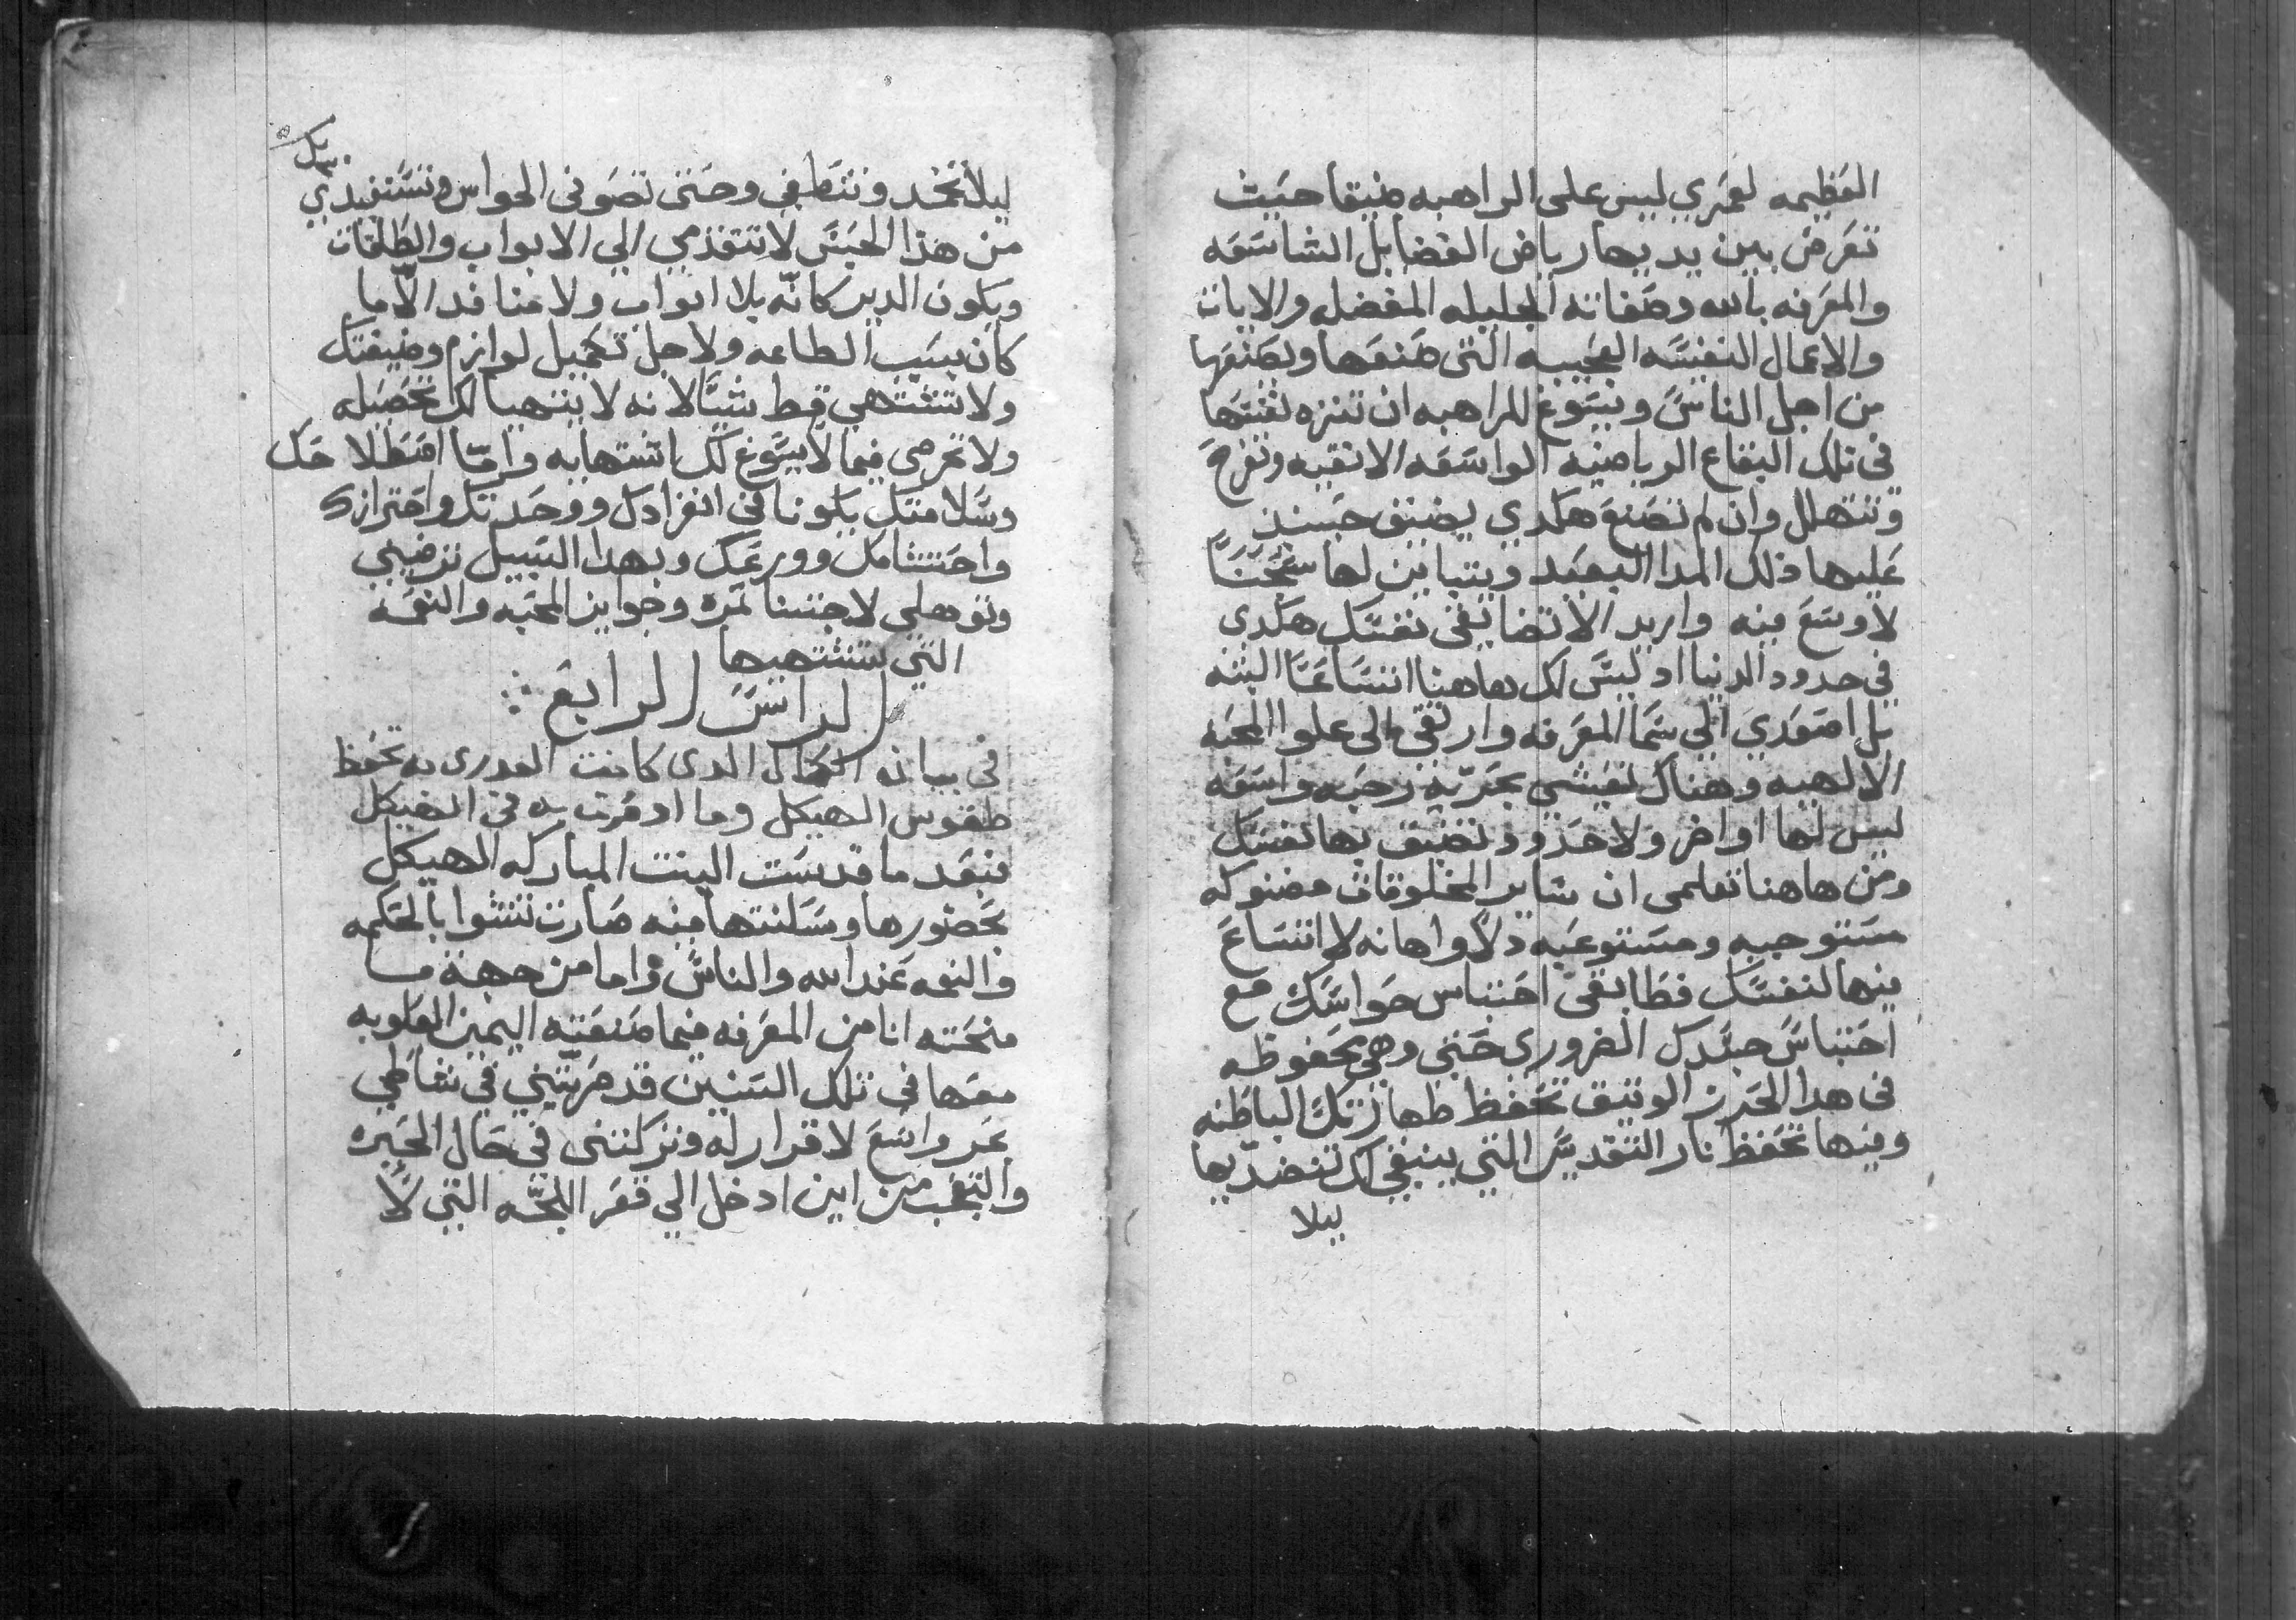 العظيمه لعمري ليس على الراهبه ضيقا حيث
تعرض بين يديها رياض الفضايل الشاسعه
والمعرفه بالله وصفاته الجليله المفضله والايات
والاعمال النفيسه العجيبه التي صنعها ويصنعها
من اجل الناس ويسوغ للراهبه ان تنزه نفسها
في تلك البقاع الرياضيه الواسعه الانقيه وتفرح
وتتهلل وان لم تصنع هكدي يضيق حينيد
عليها ذلك المدا البعيد ويتباين لها سجنا
لا وسع فيه واريد الا تضايقي نفسك هكدي
في حدود الدنيا اد ليس لك هاهنا اتساعا البته
بل اصعدي الي سما المعرفه وارتقي الى علو المحبه
الالهيه وهناك تعيشي بحريه رحبه واسعه
ليس لها اواخر ولا حدود تضيق بها نفسك
ومن هاهنا تعلمي ان ساير المخلوقات مضنوكه
مستوجبه ومستوعبه دلا واهانه لا اتساع
فيها لنفسك فطابقي احتباس حواسك مع
احتباس جسدك الضروري حتي وهي محفوظه
في هدا الحرز الوتيق تحفظ طهارتك الباطنه
وفيها تحفظ نار التقديس التي ينبغي لك تنضديها
ليلا
ليلا تخمد وتنطفي وحتي تصوني الحواس وتستفيدي
من هذا الحبس لا تتقدمي الي الابواب والطاقات
ويكون الدير كانه بلا ابواب ولا منافد الا ما
كان بسبب الطاعه ولاجل تكميل لوازم وضيفتك
ولا تشتهي قط شيا لانه لا يتهيا لك تحصيله
ولا تحرصي فيما لا يسوغ لك اشتهايه واما افتطلاحك
وسلامتك يكونا في انفرادك ووحدتك واحترازك
واحتشامك وورعك وبهدا السبيل ترضيني
وتوهلي لاجتنا ثمرة وجوايز المحبه والنعمه
التي ستشتهيها
الراس الرابع
في بيانه الكمال الدي كانت العدري به تحفظ
طقوس الهيكل وما ادمرت به في الهيكل
فبعد ما قدست البنت المباركه الهيكل
بحضورها وسكنتها فيه صارت تنشوا بالحكمه
والنعمه عند الله والناس واما من جهة ما
منحته انا من المعرفه فيما صنعته اليمين العلويه
معها في تلك السنين قد صيرتيني في شاطي
بحر واسع لا قرار له وتركتني في حال الحيره
والتعجب من اين ادخل الي قعر اللجه التي لا